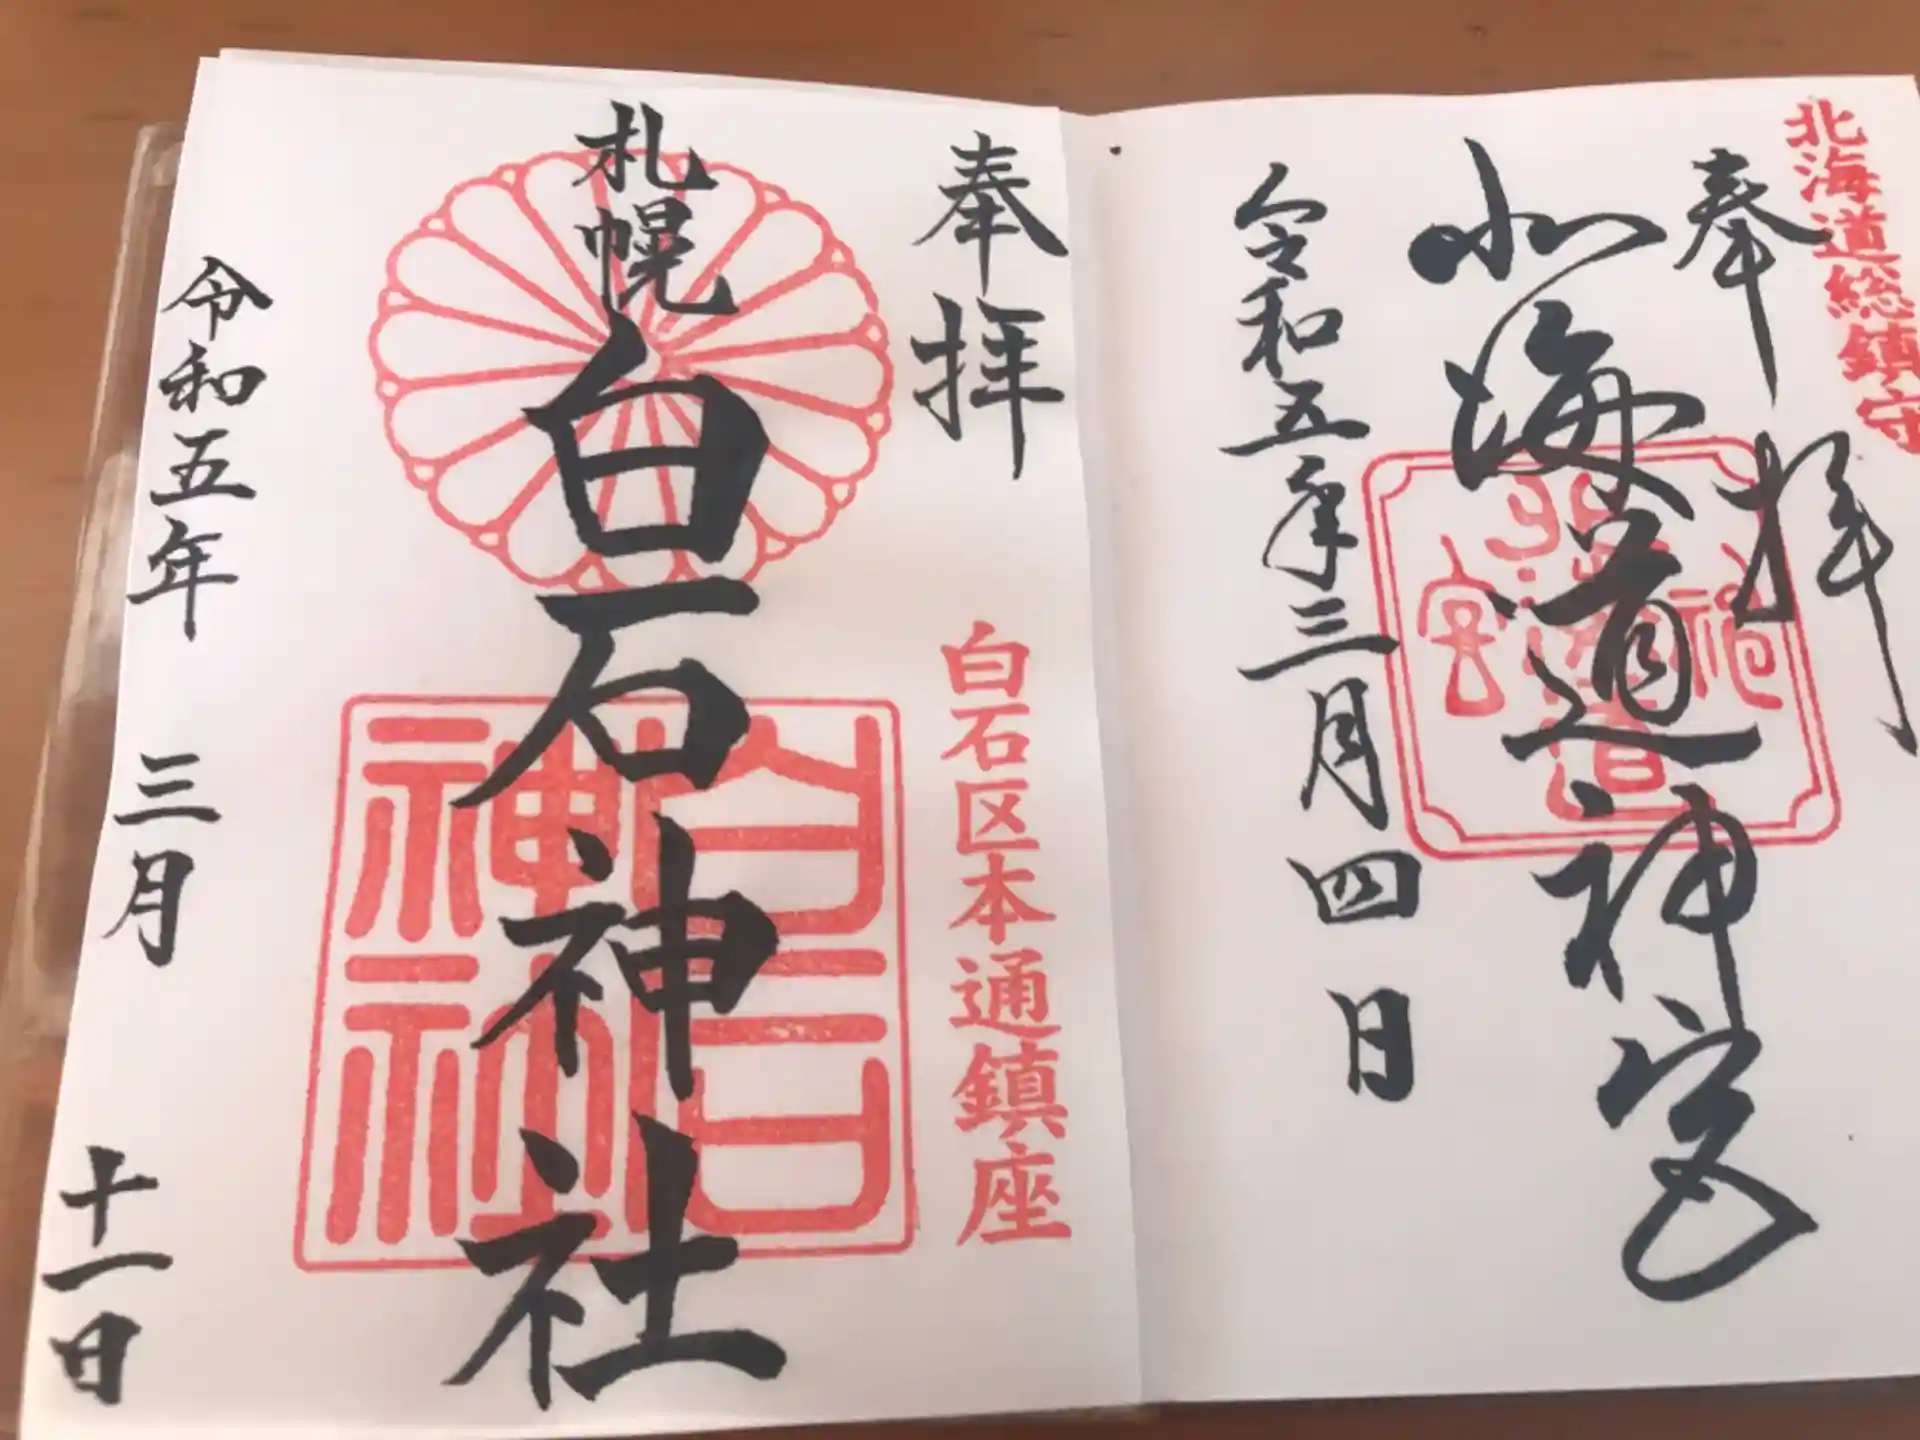 北海道総鎮守
奉拝
北海道神宮
令和五年三月四日
北海道
神
宮
奉拝
白石区本通鎮座
札幌
白石神社
白石
神社
令和五年 三月 十一日